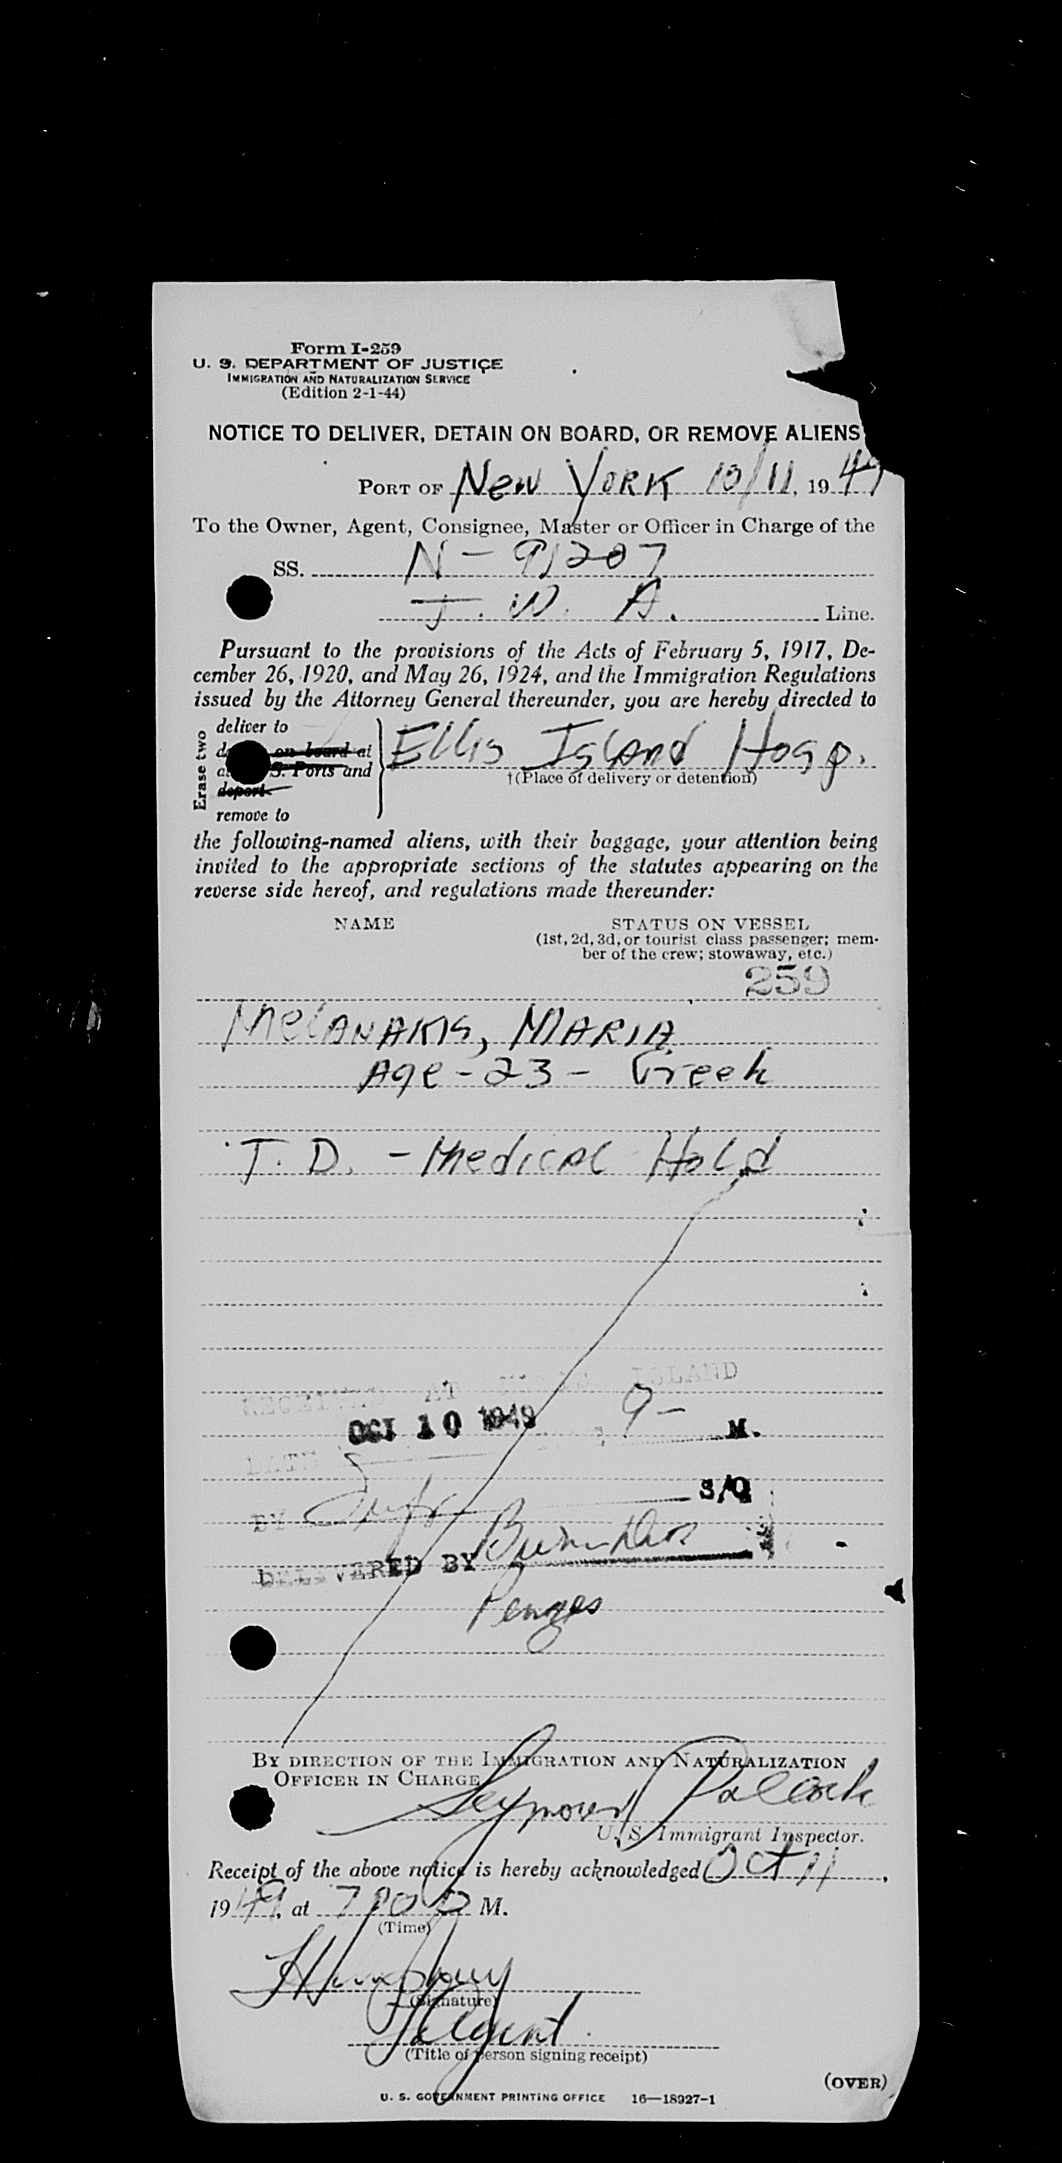 Form I-259
U. S. DEPARTMENT OF JUSTICE
IMMIGRATION AND NATURALIZATION SERVICE
(Edition 2-1-44)
NOTICE TO DELIVER, DETAIN ON BOARD, OR REMOVE ALIENS
PORT OF New York 10/11, 1949
To the Owner, Agent, Consignee, Master or Officer in Charge of the
SS. N-91207
T. W. A. Line.
Pursuant to the provisions of the Acts of February 5, 1917, De-
cember 26, 1920, and May 26, 1924, and the Immigration Regulations
issued by the Attorney General thereunder, you are hereby directed to
Erase two
deliver to
on board at
S. Ports and
deport
remove to
Ellis Island Hosp.
†(Place of delivery or detention)
the following-named aliens, with their baggage, your attention being
invited to the appropriate sections of the statutes appearing on the
reverse side hereof, and regulations made thereunder:
NAME STATUS ON VESSEL
(1st, 2d, 3d, or tourist class passenger; mem-
ber of the crew; stowaway, etc.)
259
Melanakis, Maria
Age - 23 - Greek
T. D. - Medical Hold
RECEIVED AT ELLIS ISLAND
DATE OCT 10 1949 9- M.
BY S/Q
DELIVERED BY
BY DIRECTION OF THE IMMIGRATION AND NATURALIZATION
OFFICER IN CHARGE
Seymour Pollock
U. S. Immigrant Inspector.
Receipt of the above notice is hereby acknowledged Oct 11,
1949, at M.
(Time)
(Signature)
Agent
(Title of person signing receipt)
(OVER)
U. S. GOVERNMENT PRINTING OFFICE 16—18927-1